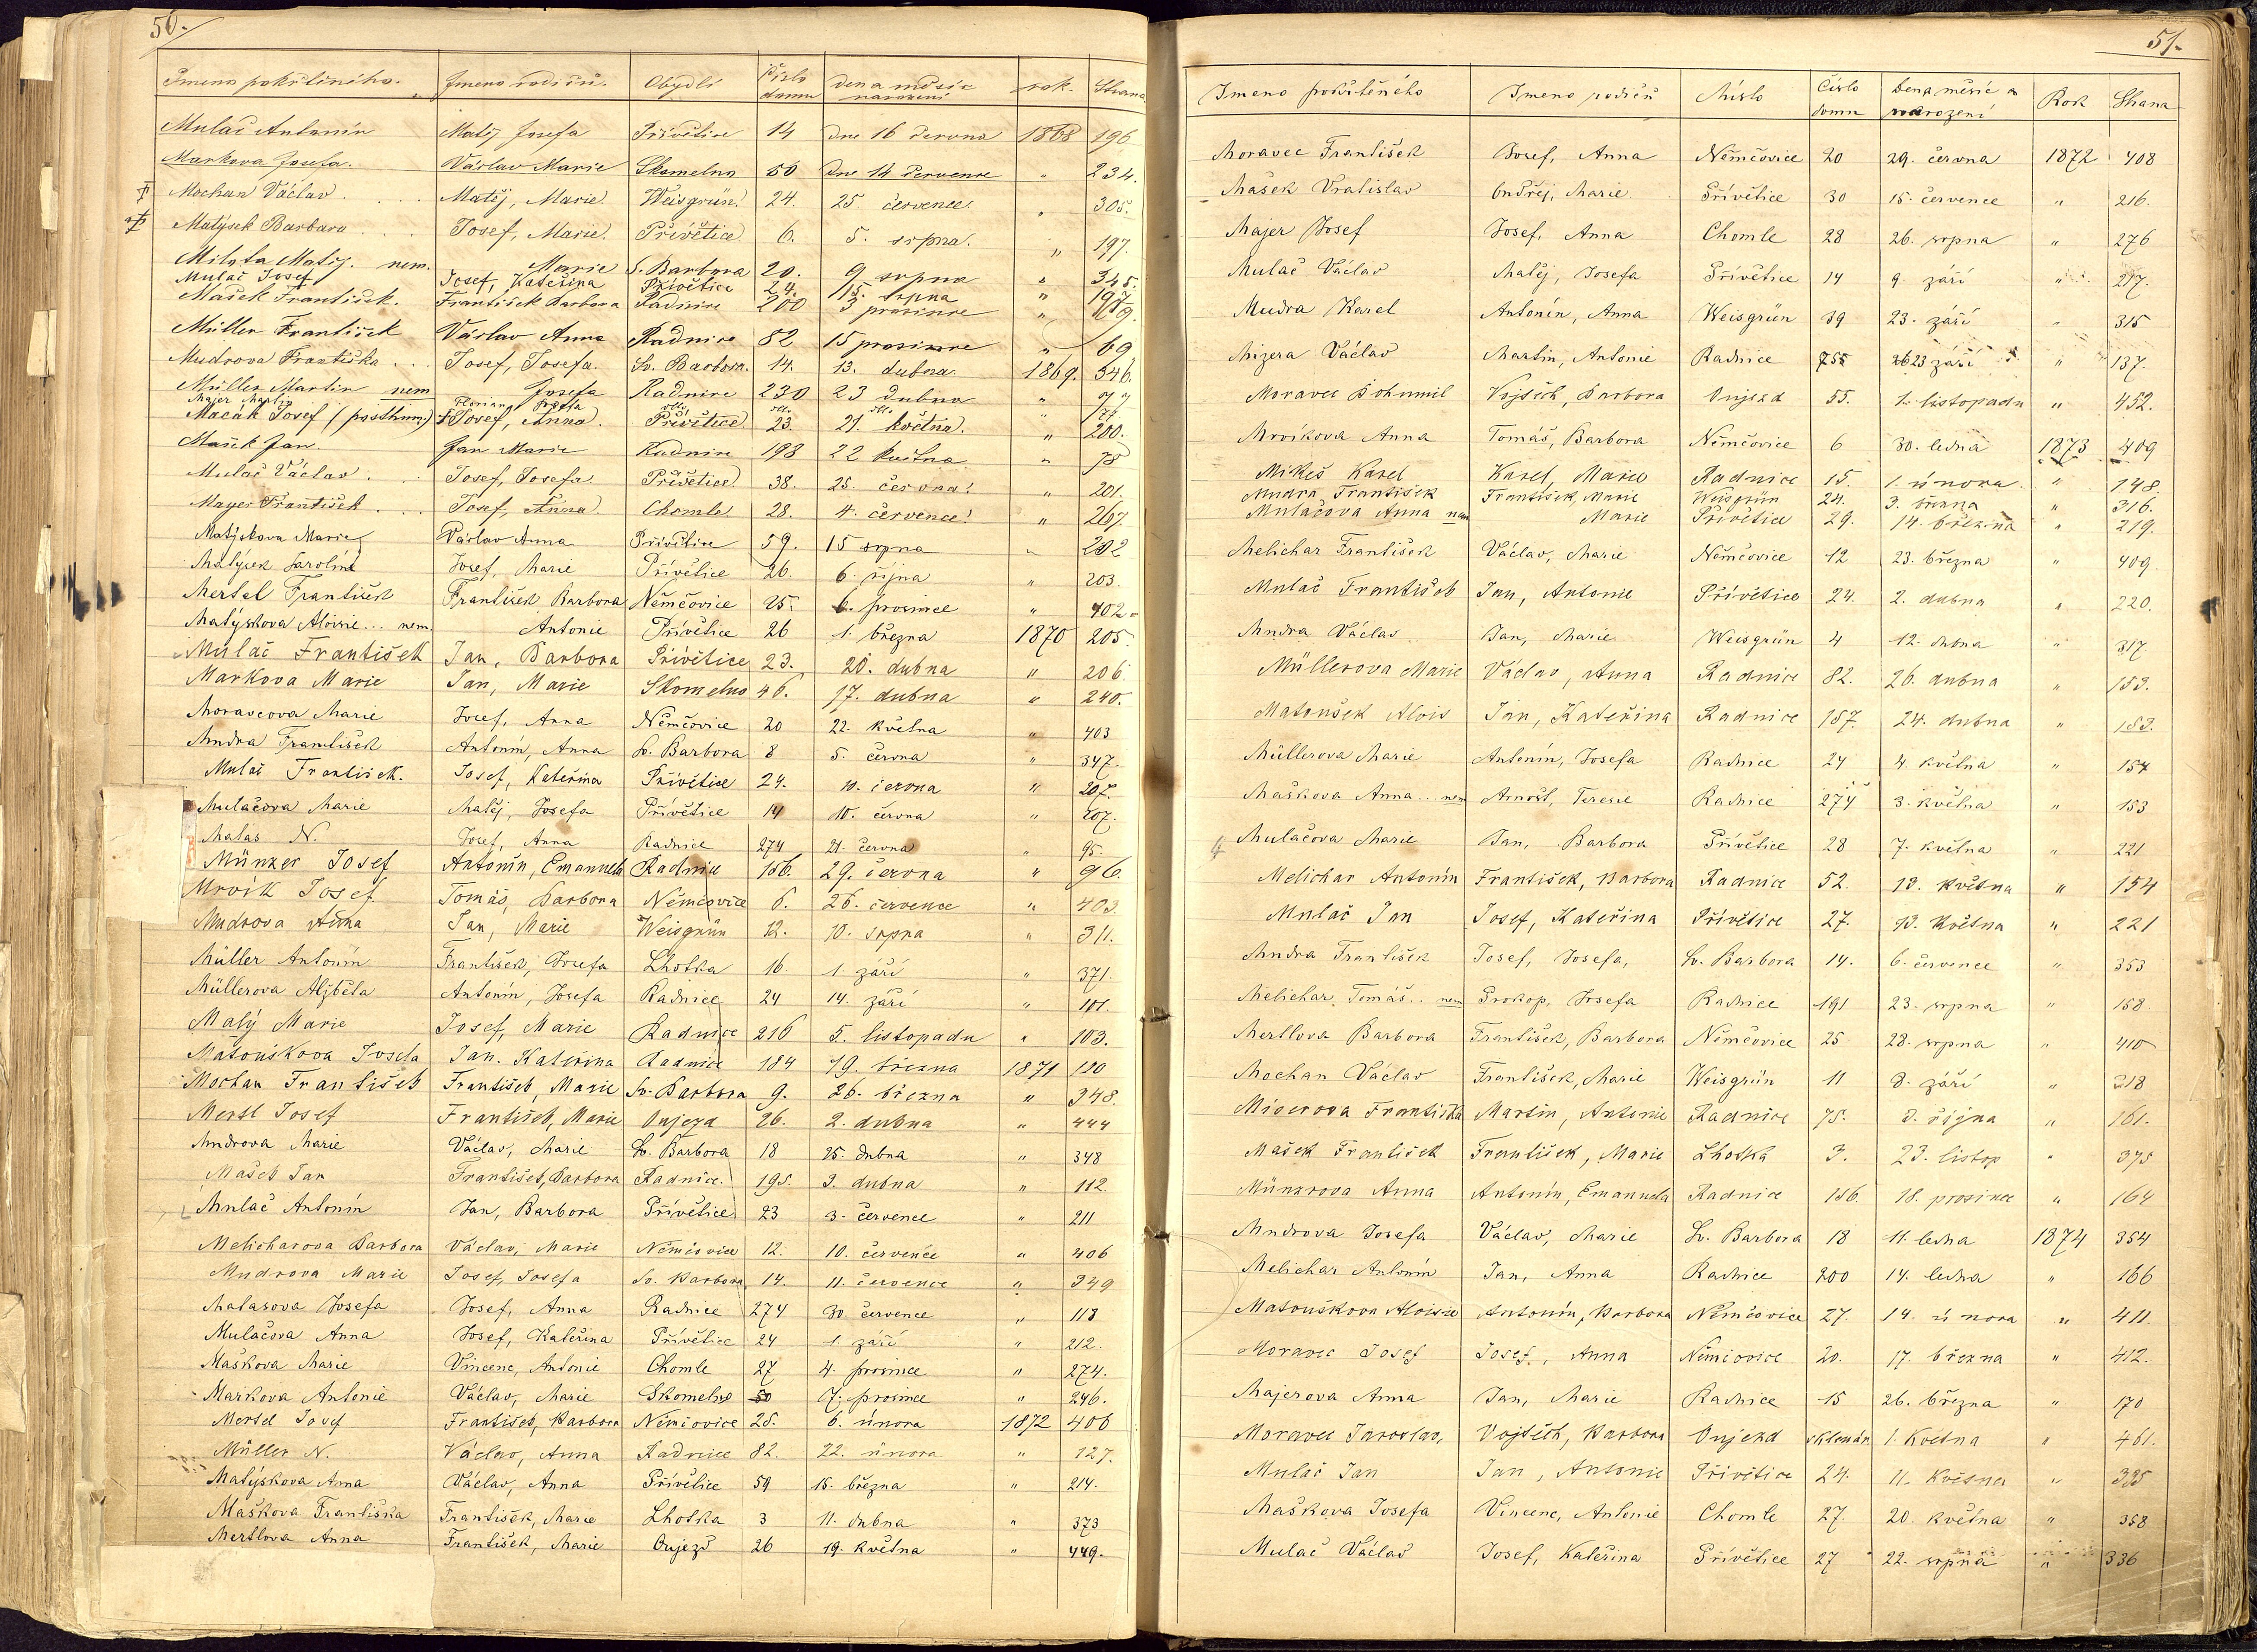 50.
Jmeno pokřtěného. Jmeno rodičů. Obydlí Číslo domu Den a měsíc narození rok. Strana
Mulač Antonín Matěj Josefa Přívětice 14 dne 16 června 1868 196
Markova Josefa. Václav Marie Skomelno 50 dne 14 července " 234.
Mochan Václav . . . Matěj, Marie. Weisgrün. 24. 25. července. " 305.
Matýsek Barbara . . . Josef, Marie. Přívětice 6. 5. srpna. " 197.
Milota Matěj. nem. Marie S. Barbora 20. 9 srpna " 345.
Mulač Josef Josef, Kateřina Přívětice 24. 15. srpna " 197.
Mašek František. František Barbora Radnice 200 3 prosince "
Müller František Václav Anna Radnice 82 15 prosince " 69
Mudrova Františka . . Josef, Josefa. Sv. Barbora. 14. 13. dubna. 1869. 346.
Müller Martin nem Josefa Radnice 230 23 dubna " 77
Majer Martin Florian, Josefa
Macák Josef (posthum) Josef, Anna. Přívětice 23. 21. května. " 200.
Mašek Jan. Jan Marie Radnice 198 22 května " 78
Mulač Václav . . Josef, Josefa Přívětice 38. 25. června. " 201.
Mayer František . . . Josef, Anna. Chomle. 28. 4. července. " 267.
Matýskova Marie Václav Anna Přívětice 59. 15 srpna " 202
Matýsek Karolina Josef, Marie Přívětice 26. 6. října " 203.
Mertel František František Barbora Němčovice 25. 6. prosince " 402.
Matýskova Aloisie... nem. Antonie Přívětice 26 1. března 1870 205
Mulač František Jan, Barbora Přívětice 23. 20. dubna " 206.
Markova Marie Jan, Marie Skomelno 46. 17. dubna " 240.
Moravcova Marie Josef, Anna Němčovice 20 22. května " 403
Mudra František Antonín, Anna Sv. Barbora 8 5. června " 347.
Mulač František. Josef, Kateřina Přívětice 24. 10. června " 207.
Mulačova Marie Matěj, Josefa Přívětice 14 10. června " 207.
Malas N. Josef, Anna Radnice 274 21. června " 95.
Münzer Josef Antonín, Emanuela Radnice 156. 29. června " 96.
Mrvík Josef Tomáš, Barbora Němčovice 6. 26. července " 403.
Mudrova Anna Jan, Marie Weisgrün 12. 10. srpna " 311.
Müller Antonín František, Josefa Lhotka 16. 1. září " 371.
Müllerova Alžběta Antonín, Josefa Radnice 24 14. září " 101.
Malý Marie Josef, Marie Radnice 216 5. listopadu " 103.
Matouškova Josefa Jan. Kateřina Radnice 184 19. března 1871 110
Mochan František František, Marie Sv. Barbora 9. 26. března " 348.
Mertl Josef František, Marie Oujezd 26. 2. dubna " 444
Mudrova Marie Václav, Marie Sv. Barbora 18 25. dubna " 348
Mašek Jan František, Barbora Radnice. 195. 3. dubna " 112.
Mulač Antonín Jan, Barbora Přívětice 23 3. července " 211
Melicharova Barbora Václav, Marie Němčovice 12. 10. července " 406
Mudrova Marie Josef, Josefa Sv. Barbora 14. 11. července " 349
Malasova Josefa Josef, Anna Radnice 274 30. července " 118
Mulačova Anna Josef, Kateřina Přívětice 24 1. září " 212.
Maškova Marie Vincenc, Antonie Chomle 27 4. prosince " 274.
Markova Antonie Václav, Marie Skomelno 50 7. prosince " 246.
Mertel Josef František, Barbora Němčovice 25. 6. února 1872 406
Müller N. Václav, Anna Radnice 82. 22. února " 127.
Matýskova Anna Václav, Anna Přívětice 59 15. března " 214.
Maškova Františka František, Marie Lhotka 3 11. dubna " 373
Mertlova Anna František, Marie Oujezd 26 19. května " 449.
51.
Jmeno pokřtěného Jmeno rodičů Místo Číslo domu Den a měsíc narození Rok Strana
Moravec František Josef, Anna Němčovice 20 29. června 1872 408
Mašek Vratislav Ondřej, Marie Přívětice 30 15. července " 216.
Majer Josef Josef, Anna Chomle 28 26. srpna " 276
Mulač Václav Matěj, Josefa Přívětice 14 9. září " 217.
Mudra Karel Antonín, Anna Weisgrün 39 23. září " 315
Mizera Václav Martin, Antonie Radnice 23 září " 137.
Moravec Bohumil Vojtěch, Barbora Oujezd 55. 1. listopadu " 452.
Mrvíkova Anna Tomáš, Barbora Němčovice 6 30. ledna 1873 409
Mikeš Karel Karel, Marie Radnice 15. 1. února. " 148.
Mudra František František, Marie Weisgrün 24. 3. března " 316.
Mulačova Anna nem Marie Přívětice 29. 14. března " 219.
Melichar František Václav, Marie Němčovice 12 23. března " 409
Mulač František Jan, Antonie Přívětice 24. 2. dubna " 220.
Mudra Václav Jan, Marie Weisgrün 4 12. dubna " 317
Müllerova Marie Václav, Anna Radnice 82. 26. dubna " 153.
Matoušek Alois Jan, Kateřina Radnice 187. 24. dubna " 153.
Müllerova Marie Antonín, Josefa Radnice 24 4. května " 154
Maškova Anna... nem Arnošt, Teresie Radnice 274 3. května " 153
Mulačova Marie Jan, Barbora Přívětice 28 7. května " 221
Melichar Antonín František, Barbora Radnice 52. 13. května " 154
Mulač Jan Josef, Kateřina Přívětice 27. 13. května " 221
Mudra František Josef, Josefa, Sv. Barbora 14. 6. července " 353
Melichar Tomáš.. nem Prokop, Josefa Radnice 191 23. srpna " 158.
Mertlova Barbora František, Barbora Němčovice 25 28. srpna " 410
Mochan Václav František, Marie Weisgrün 11 8. září " 318
Mizerova Františka Martin, Antonie Radnice 75. 8. října " 161.
Mašek František František, Marie Lhotka 3. 23. listop " 375
Münzrova Anna Antonín, Emanuela Radnice 156. 18. prosince " 164
Mudrova Josefa Václav, Marie Sv. Barbora 18 11. ledna 1874 354
Melichar Antonín Jan, Anna Radnice 200 14. ledna " 166
Matouškova Aloisie Antonín, Barbora Němčovice 27. 14. února " 411.
Moravec Josef Josef, Anna Němčovice 20. 17. března " 412.
Majerova Anna Jan, Marie Radnice 15 26. března " 170
Moravec Jaroslav, Vojtěch, Barbora Oujezd 1. května " 461.
Mulač Jan Jan, Antonie Přívětice 24. 11. května " 335
Maškova Josefa Vincenc, Antonie Chomle 27. 20. května " 358
Mulač Václav Josef, Kateřina Přívětice 27 22. srpna " 336